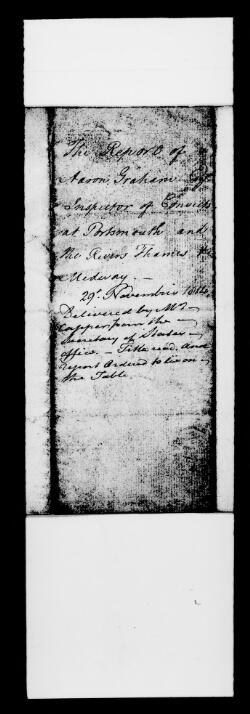 The Report of
Aaron Graham Esqr
Inspector of Convicts
at Portsmouth and
the Rivers Thames &
Medway. —
29th Novembris 1814
Delivered by Mr
Capper from the
Secretary of States
office. — Title read. And
Report Ordered to lie on
the Table